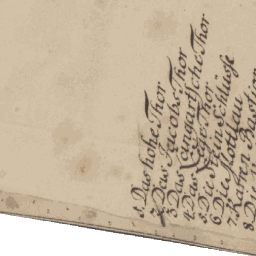 1. Das hohe Thor
2. Das Jacobs Thor
3. Das Langgartsche Thor
4. Das Lege Thor
5. Die Stein Schleuse
6. Die Mottlau
7. Karren Bastion
8. Die